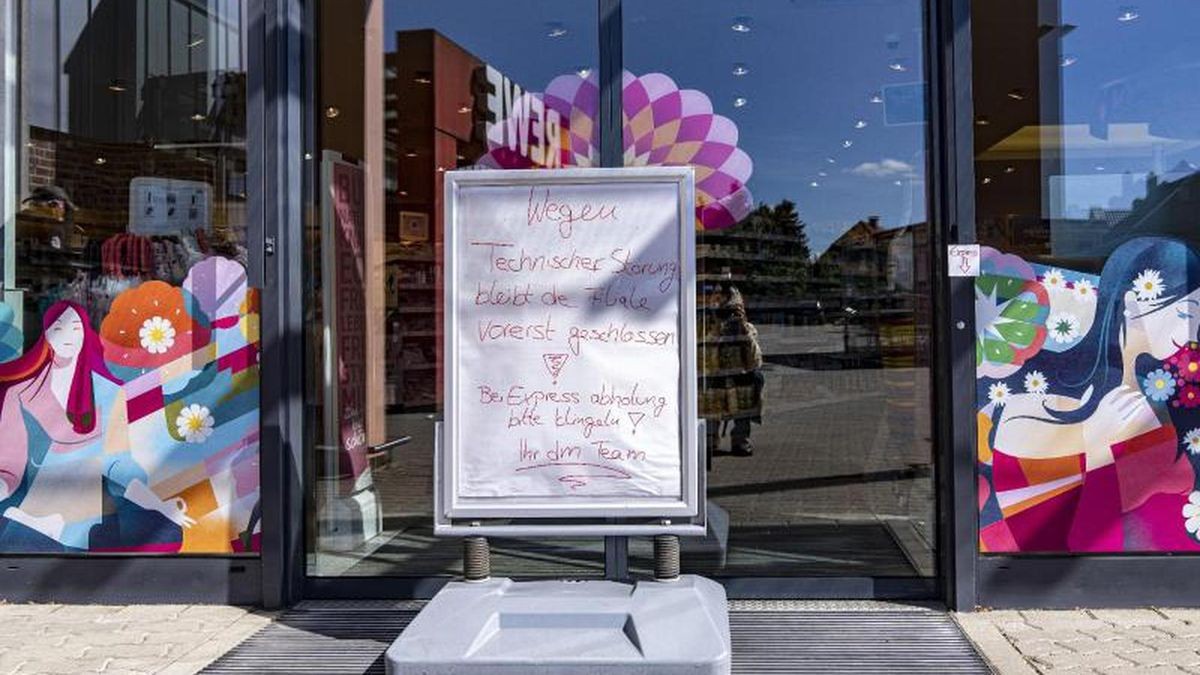 REWE
Wegen
Technischer Störung
bleibt die Filiale
vorerst geschlossen
!
Bei Express abholung
bitte klingeln !
Ihr dm Team
Express